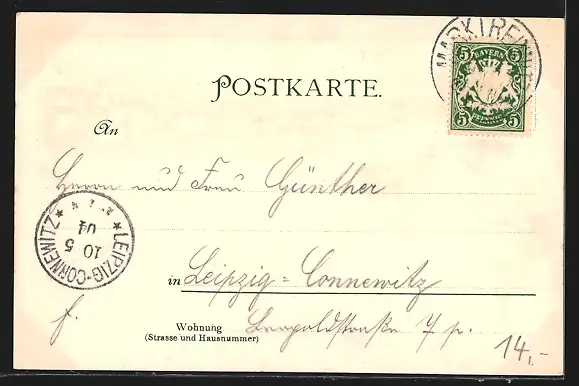 MARKTREDWITZ
5 BAYERN 5
5 PFENNIG 5
POSTKARTE.
An
Herrn und Frau Günther
LEIPZIG-CONNEWITZ
10 5
04
in Leipzig = Connewitz
f.
Wohnung
(Strasse und Hausnummer)
Leopoldstraße 7 p.
14,-